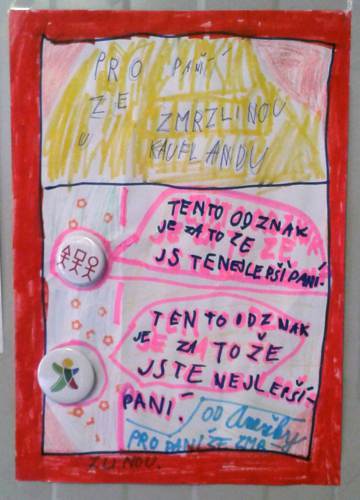 PRO PANÍ
ZE ZMRZLINOU
U KAUFLANDU
TENTO ODZNAK
JE ZA TO ZE
JSTENEJLEPŠÍ PANÍ.
TENTO ODZNAK
JE ZA TO ŽE
JSTE NEJLEPŠÍ-
PANÍ!
OD Anežky
PRO PANÍ ZE ZMR
ZLINOU.